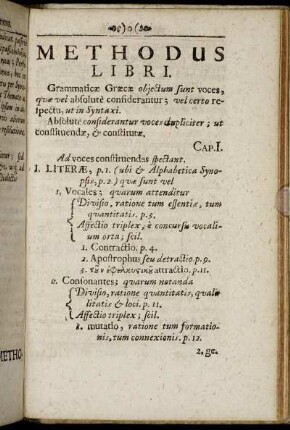 )o(
METHODUS
LIBRI.
Grammaticæ Græcæ objectum sunt voces,
quæ vel absolutè considerantur; vel certo re-
spectu, ut in Syntaxi.
Absolutè considerantur voces dupliciter; ut
constituendæ, & constitutæ.
CAP. I.
Ad voces constituendas spectant.
I. LITERÆ, p. 1. (ubi & Alphabetica Syno-
psis, p. 2.) quæ sunt vel
1. Vocales; quarum attenditur
Divisio, ratione tum essentiæ, tum
quantitatis. p. 5.
Affectio triplex, è concursu vocali-
um orta; scil.
1. Contractio. p. 4.
2. Apostrophus seu detractio p. 9.
3. τοῦ ν ἐφελκυστικοῦ attractio. p. 11.
2. Consonantes; quarum notanda
Divisio, ratione quantitatis, qualitatis & loci. p. 11.
Affectio triplex; scil.
1. mutatio, ratione tum formatio-
nis, tum connexionis. p. 12.
2. ge-
METHO-